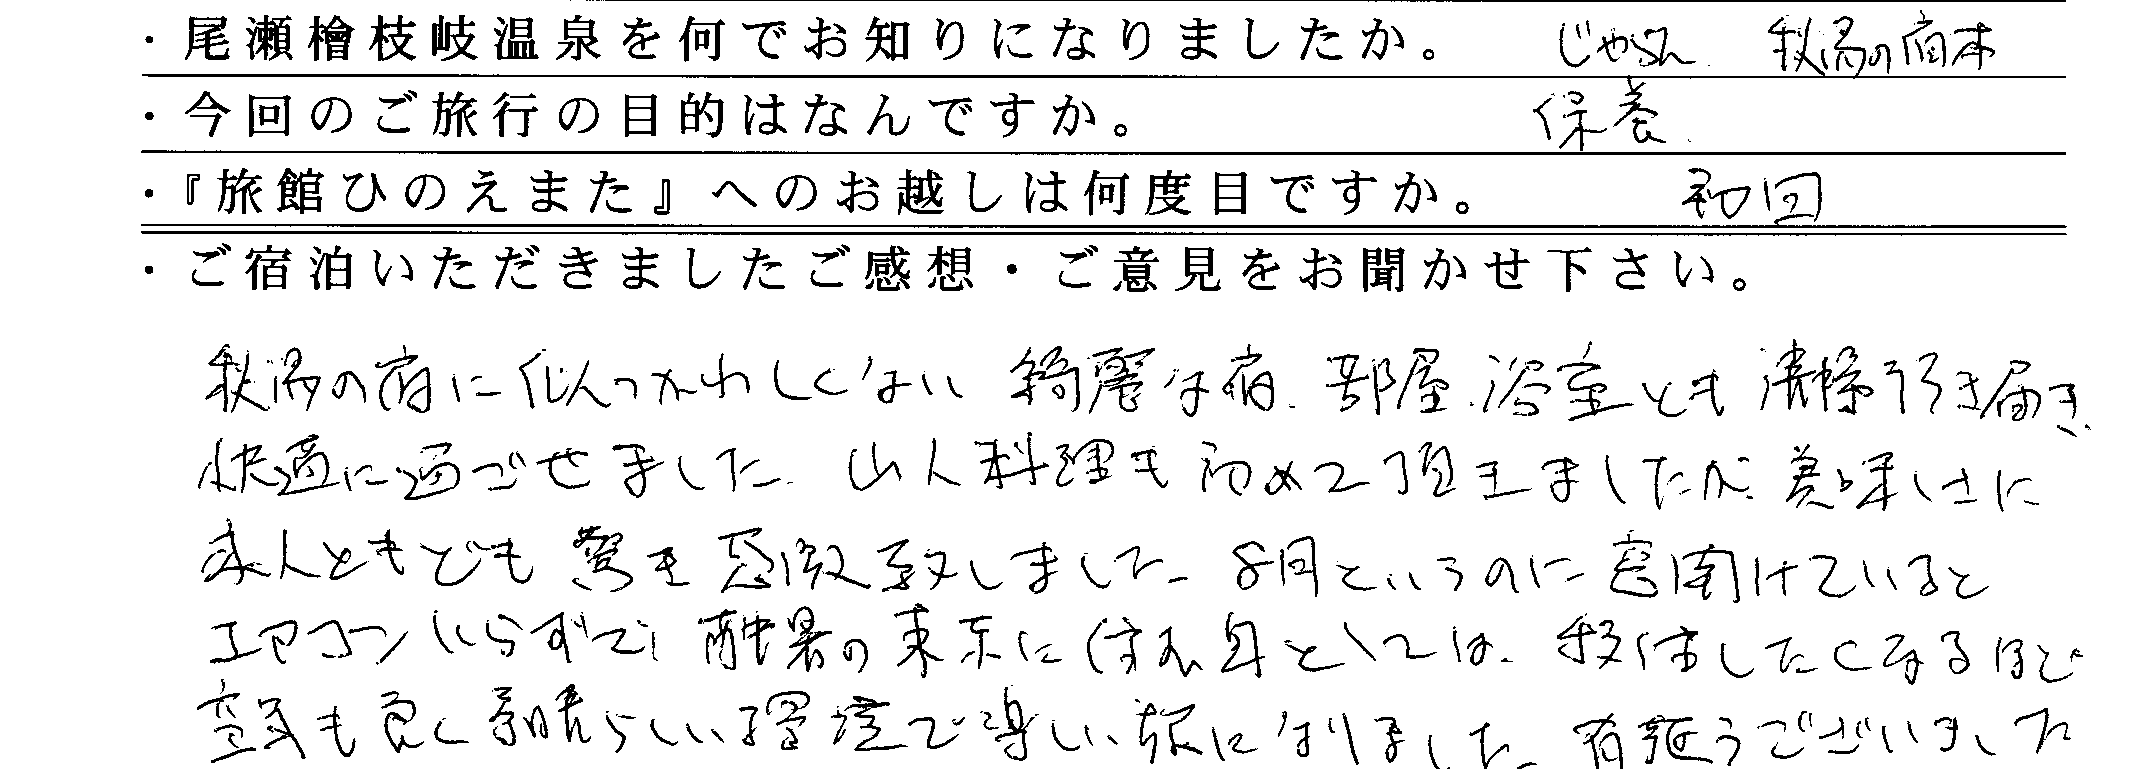 ・尾瀬檜枝岐温泉を何でお知りになりましたか。 じゃらん 秘湯の宿本
・今回のご旅行の目的はなんですか。 保養
・『旅館ひのえまた』へのお越しは何度目ですか。 初回
・ご宿泊いただきましたご感想・ご意見をお聞かせ下さい。
秘湯の宿に似つかわしくない綺麗な宿、部屋、浴室とも清掃行き届き、
快適に過ごせました。山人料理も初めて頂きましたが、美味しさに
主人ともども驚き感激致しました。8月というのに窓開けていると
エアコンいらずで、酷暑の東京に住む身としては、移住したくなるほど
空気も良く素晴らしい環境で楽しい旅になりました。有難うございました